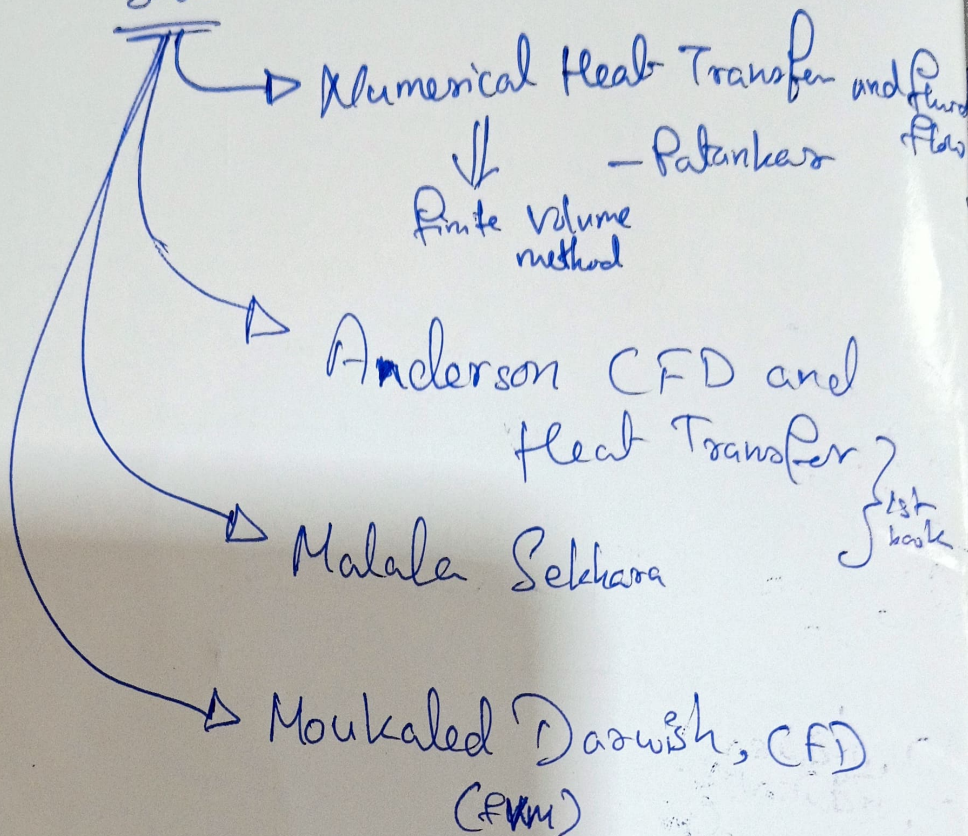 Numerical Heat Transfer and fluid
flow
- Patankar
finite volume
method
Anderson CFD and
Heat Transfer
1st
book
Malala Sekhara
Moukaled Darwish, CFD
(FVM)